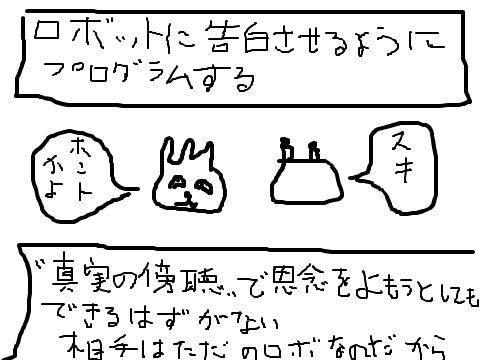 ロボットに告白させるように
プログラムする
スキ
ホント
かよ
"真実の傍聴"で思念をよもうとしても
できるはずがない
相手はただのロボなのだから